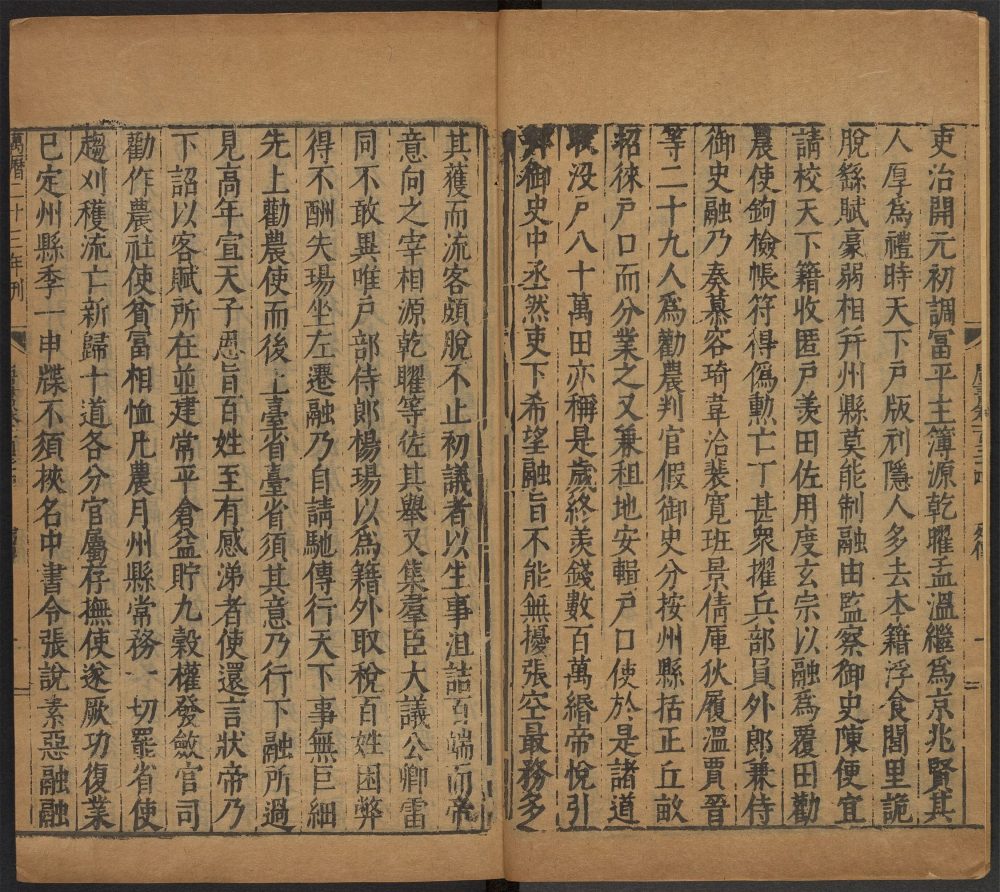 吏治開元初調冨平主簿源乾曜孟溫繼爲京兆賢其
人厚爲禮時天下戸版刓隱人多去本籍浮食閭里詭
脫繇賦豪弱相并州縣莫能制融由監察御史陳便宜
請校天下籍收匿戸羡田佐用度玄宗以融爲覆田勸
農使鉤檢帳符得僞勲亡丁甚衆擢兵部員外郎兼侍
御史融乃奏慕容琦韋洽裴寛班景倩厙狄履溫賈晉
等二十九人爲勸農判官假御史分按州縣括正丘畝
招徠戸口而分業之又兼租地安輯戸口使於是諸道
收没戸八十萬田亦稱是歲終羡錢數百萬緡帝悅引
御史中丞然吏下希望融旨不能無擾張空最務多
其獲而流客頗脫不止初議者以生事沮詰百端而帝
意向之宰相源乾曜等佐其舉又集羣臣大議公卿雷
同不敢異唯戸部侍郎楊瑒以爲籍外取稅百姓困弊
得不酬失瑒坐左遷融乃自請馳傳行天下事無巨細
先上勸農使而後上臺省臺省須其意乃行下融所過
見高年宣天子恩旨百姓至有感涕者使還言狀帝乃
下詔以客賦所在並建常平倉益貯九榖權發斂官司
勸作農社使貧冨相恤凡農月州縣常務一切罷省使
趨刈穫流亡新歸十道各分官屬存撫使遂厥功復業
已定州縣季一申牒不須挾名中書令張說素惡融融
萬曆二十三年刊